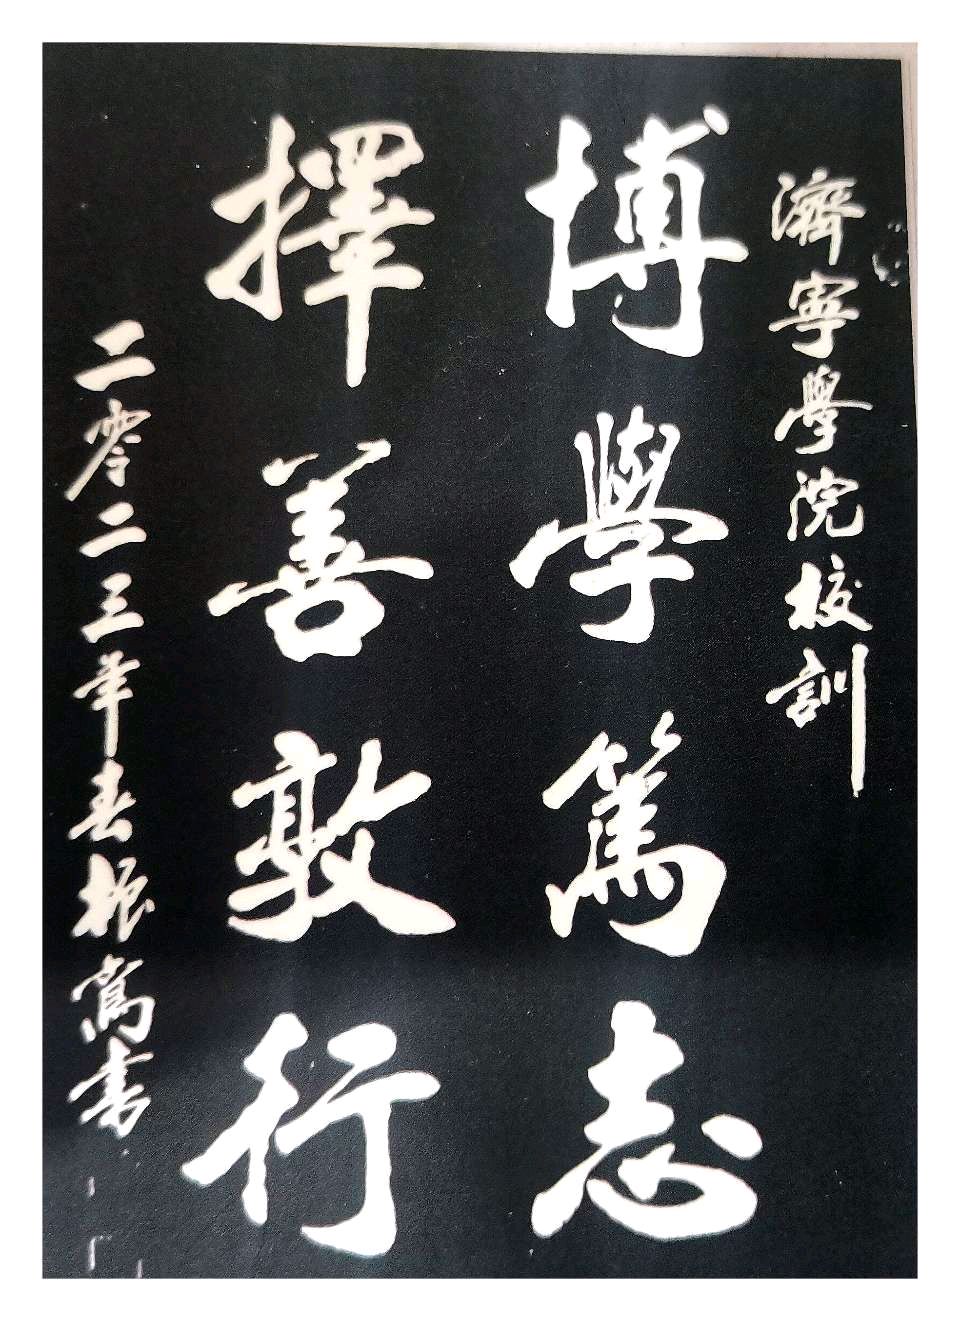 濟寧學院校訓
博學篤志
擇善敦行
二零二三年春振嵩書